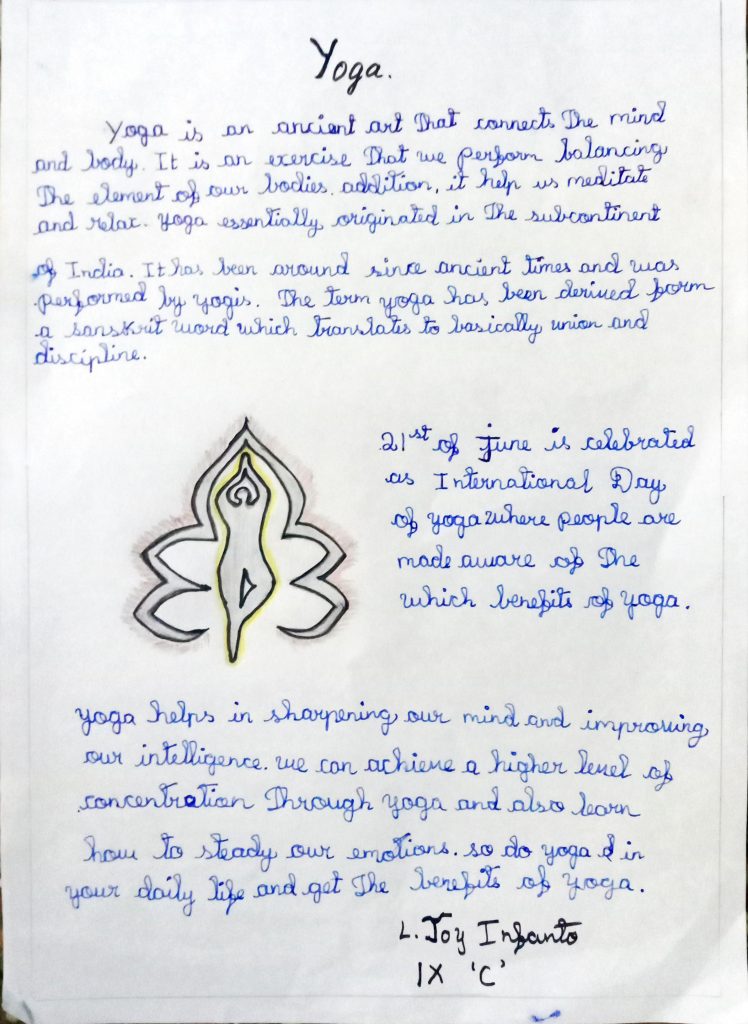 Yoga.
Yoga is an ancient art that connects the mind
and body. It is an exercise that we perform balancing
the element of our bodies. addition, it help us meditate
and relax. yoga essentially originated in the subcontinent
of India. It has been around since ancient times and was
performed by yogis. The term yoga has been derived form
a sanskrit word which translates to basically union and
discipline.
21st of june is celebrated
as International Day
of yoga where people are
made aware of the
which benefits of yoga.
yoga helps in sharpening our mind and improving
our intelligence. we can achieve a higher level of
concentration through yoga and also learn
how to steady our emotions. so do yoga in
your daily life and get the benefits of yoga.
L. Joy Infanto
IX 'C'